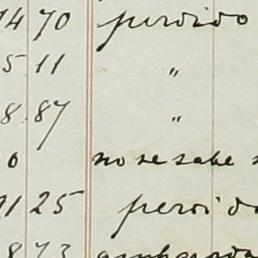 74 70 perdido
5 11 "
8.87 "
0 no se sabe
71 25 perdido
873